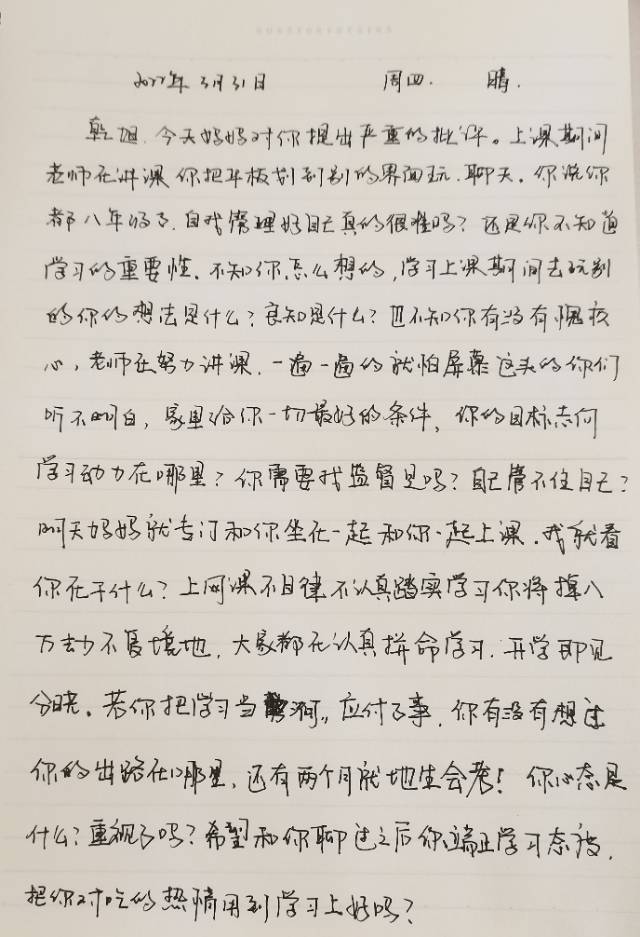 2022年3月31日 周四. 晴.
乾旭,今天妈妈对你提出严重的批评。上课期间
老师在讲课你把平板划到别的界面玩、聊天。你说你
都八年级了,自我管理好自己真的很难吗?还是你不知道
学习的重要性。不知你怎么想的,学习上课期间去玩别
的你的想法是什么?良知是什么?也不知你有没有愧疚
心,老师在努力讲课,一遍一遍的就怕屏幕这头的你们
听不明白,家里给你一切最好的条件,你的目标志向
学习动力在哪里?你需要找监督是吗?自己管不住自己?
明天妈妈就专门和你坐在一起和你一起上课,我就看
你在干什么?上网课不自律不认真踏实学习你将掉入
万劫不复境地,大家都在认真拼命学习,开学即见
分晓。若你把学习当 应付了事,你有没有想过
你的出路在哪里,还有两个月就地生会考!你心态是
什么?重视了吗?希望和你聊过之后你端正学习态度,
把你对吃的热情用到学习上好吗?